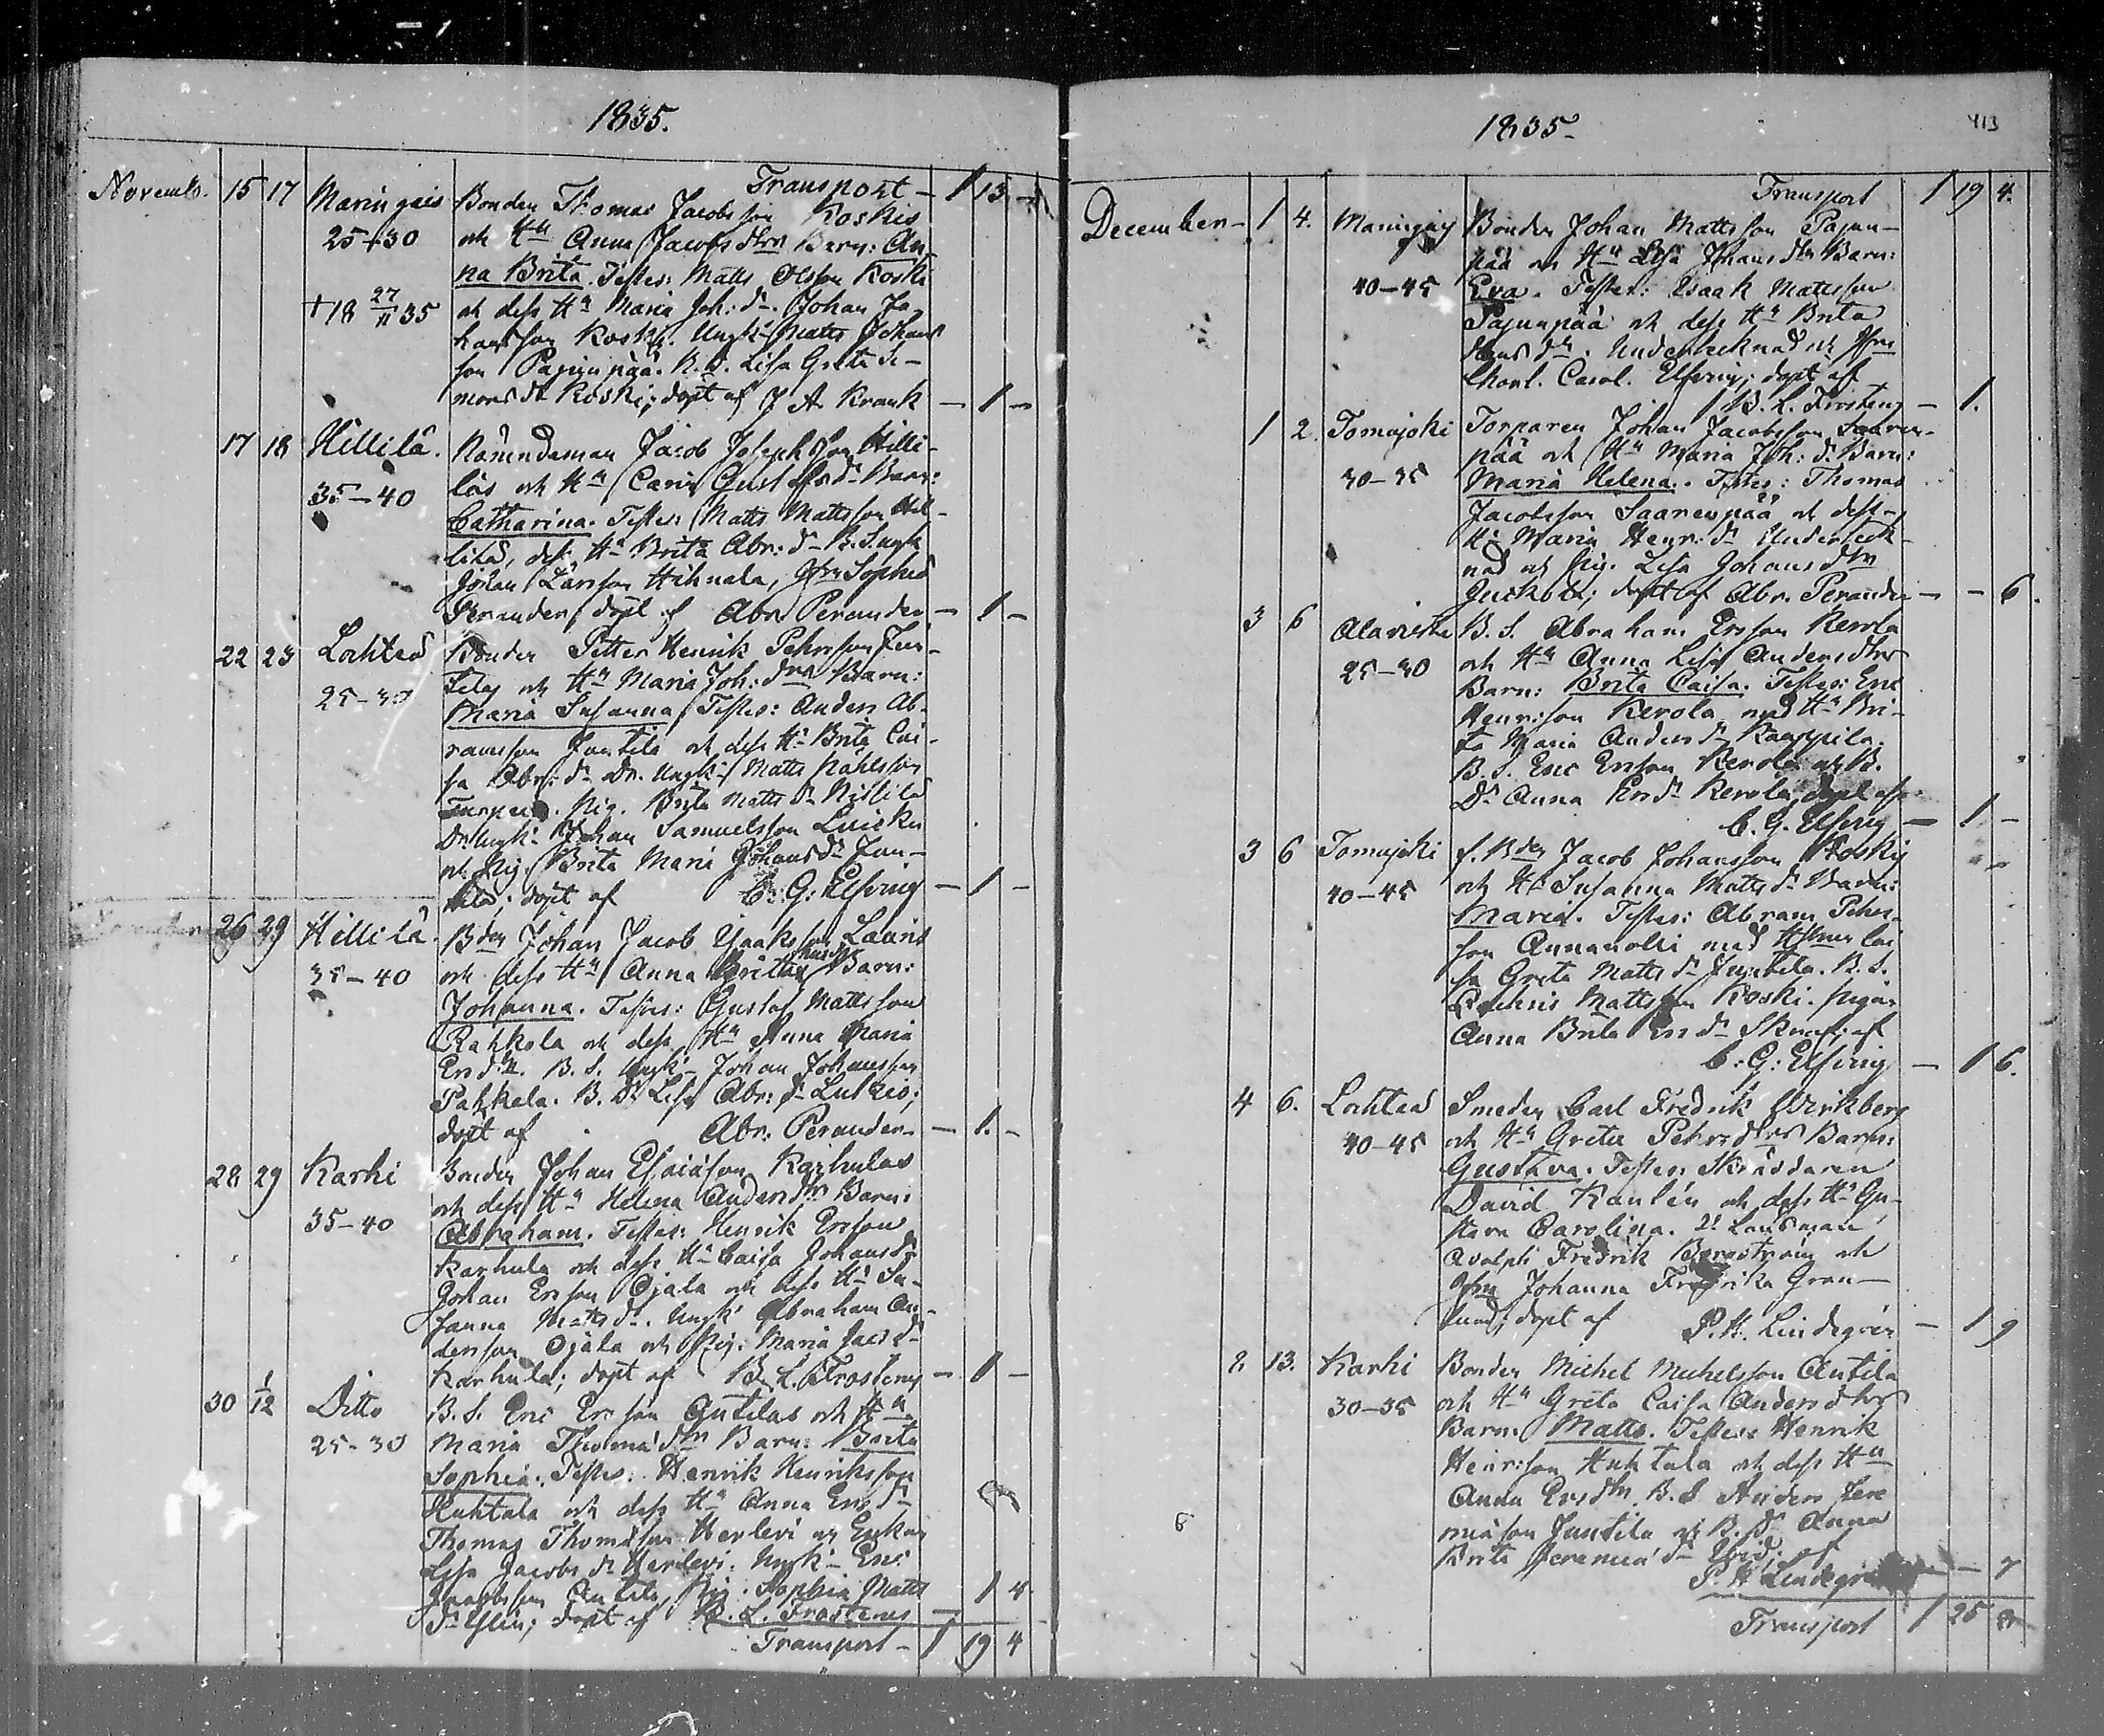 1835.
Transport - 1 13 -
Novemb. 15 17 Maringais Bonden Thomas Jacobsson Koskis
25-30 och Hu Anna Jacobs dtrs Barn: An-
na Brita. Testes: Matts Olsson Koski
+18 27/11 35 och dess Hu Maria Joh: dr. Johan Jo
hansson Koski. Ungk: Matts Johans
son Pajunpää. B. D. Lisa Greta Si-
mons dr Koski; döpt af J A Krank - 1 -
17 18 Hillilä. Nämndeman Jacob Josephsson Hilli-
läs och Hu Carin Gustafs dr Barn:
35-40 Catharina. Testes: Matts Mattsson Hil-
lilä, dess Hu Brita Abr: dr B. S. ungk
Johan Larsson Hihnala, Jfru Sophia
Perander, döpt af Abr Perander - 1 -
22 23 Lochteå Bonden Petter Henrik Pehrsson Jun-
25-30 tilas och Hu Maria Joh: dra Barn:
Maria Susanna Testes: Anders Ab-
ramsson Juntila och dess Hu Brita Cai-
sa Abr: dr Dr. Ungk: Matts Påhlsson
Pig. Brita Matts dr
Dr Ungk: Johan Samuelsson
och Pig. Brita Maria Johans dr Jun-
tila; döpt af C: G: Elfving - 1 -
26 29 Hillilä. Bden Johan Jacob Isaksson Lauris
35-40 och dess Hu Anna Brita Barn:
Johanna. Testes: Gustaf Mattsson
Rahkola och dess Hu Anna Maria
Ers dr. B. S. Ungk: Johan Johansson
Pahkala. B. Dr Lisa Abr: dr
döpt af Abr. Perander - 1. -
28 29 Karhi Bonden Johan Esaiasson Karhulas
35-40 och dess Hu Helena Anders dtr Barn:
Abraham. Testes: Henrik Ersson
Karhula och dess Hu Caisa Johans dr
Johan Ersson Ojala och dess Hu Su-
sanna Matts dr. Ungk: Abraham An-
dersson Ojala och Pig: Maria Jacs dr
Karhula; döpt af B. L. Frosterus - 1 -
30 1/12 Ditto B. S. Eric Ersson Antilas och Hu
25-30 Maria Thomæ dtr Barn: Brita
Sophia. Testes: Henrik Henriksson
Huhtala och dess Hu Anna Ers dr
Thomas Thomasson Herlevi och Enkan
Lisa Jacobs dr Herlevi. Ungk: Eric
Jacobsson Antila, Pig. Sophia Matts 1 4
dr döpt af B. L. Frosterus -
Transport - 1 19 4
1835.
413
Transport 1 19 4.
December - 1 4. Maringais Bonden Johan Mattsson Pajun-
pää och Hu Lisa Johans dtr Barn:
40-45 Eva. Testes: Isaak Mattsson
Pajunpää och dess Hu Brita
Hans dr. Undertecknad och Jfru
Charl. Carol. Elfving; döpt af
B. L. Frosterus - 1.
1 2. Tomujoki Torparen Johan Jacobsson Saaren-
pää och Hu Maria Joh: dr Barn:
30-35 Maria Helena. Testes: Thomas
Jacobsson Saarenpää och dess
Hu Maria Henr: dr Underteck-
nad och Pig. Lisa Johans dtr
döpt af Abr. Perander - - 6.
3 6 Alaviirre B. S. Abraham Ersson Kerola
25-30 och Hu Anna Lisa Anders dtrs
Barn: Brita Caisa. Testes: Eric
Henrsson Kerola med Hu Bri-
ta Maria Anders dr Kauppila.
B. S. Eric Ersson Kerola och B.
Dr Anna Ers dr Kerola, döpt af
C. G. Elfving - 1 -
3 6 Tomujoki f. Bden Jacob Johansson Koskis
40-45 och Hu Susanna Matts dr Barn:
Maria. Testes: Abram Pehrs-
son Annanolli med Hustrun Cai-
sa Greta Matts dr Juntila. B. S.
Mattsson Koski. Pigan
Anna Brita Ers dr af
C: G: Elfving - 1 6.
4 6. Lochteå Smeden Carl Fredrik Wirkberg
40-45 och Hu Greta Pehrs dtrs Barn:
Gustava. Testes: Skräddaren
David Kanlén och dess Hu Gu-
stava Carolina. Länsman
Adolph Fredrik Bergström och
Jfru Johanna Fredrika Gran-
lund; döpt af P. H. Lindegrén - 1 9
2. 13. Karhi Bonden Michel Michelsson Antila
30-35 och Hu Greta Caisa Anders dtrs
Barn: Matts. Testes: Henrik
Henrsson Huhtala och dess Hu
Anna Ers dtr. B. S Anders Jere
miasson Juntila och B. Dr Anna
8 Brita Jeremiæ dr Ibid; af
P. H Lindegrén - 7
Transport 1 25